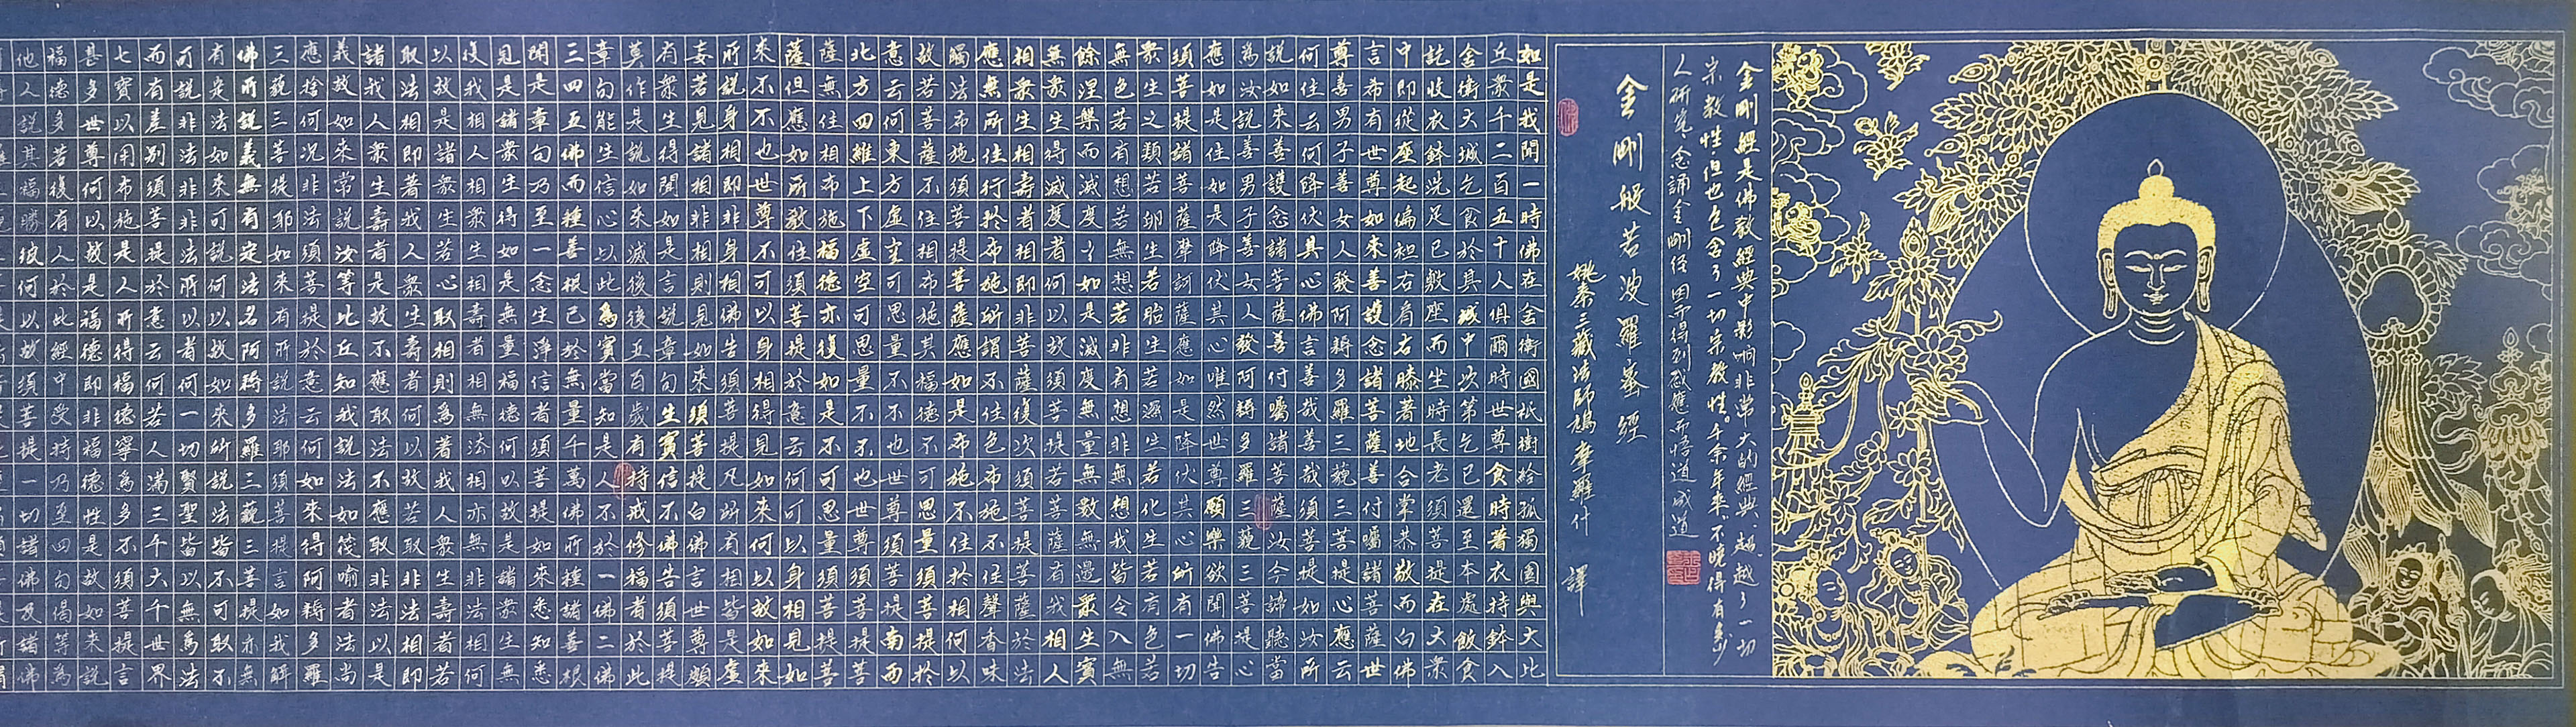 金剛經是佛教經典中影响非常大的經典、超越了一切
宗教性但也包含了一切宗教性。千余年来，不晓得有多少
人研究念誦金剛经因而得到感應而悟道成道
金剛般若波羅蜜經
姚秦三藏法師鳩摩羅什 譯
如是我聞一時佛在舍衛國祇樹給孤獨園與大比
丘衆千二百五十人俱爾時世尊食時著衣持鉢入
舍衛大城乞食於其城中次第乞已還至本處飯食
訖收衣鉢洗足已敷座而坐時長老須菩提在大衆
中即從座起偏袒右肩右膝著地合掌恭敬而白佛
言希有世尊如來善護念諸菩薩善付囑諸菩薩世
尊善男子善女人發阿耨多羅三藐三菩提心應云
何住云何降伏其心佛言善哉善哉須菩提如汝所
說如來善護念諸菩薩善付囑諸菩薩汝今諦聽當
為汝說善男子善女人發阿耨多羅三藐三菩提心
應如是住如是降伏其心唯然世尊願樂欲聞佛告
須菩提諸菩薩摩訶薩應如是降伏其心所有一切
衆生之類若卵生若胎生若濕生若化生若有色若
無色若有想若無想若非有想非無想我皆令入無
餘涅槃而滅度之如是滅度無量無數無邊衆生實
無衆生得滅度者何以故須菩提若菩薩有我相人
相衆生相壽者相即非菩薩復次須菩提菩薩於法
應無所住行於布施所謂不住色布施不住聲香味
觸法布施須菩提菩薩應如是布施不住於相何以
故若菩薩不住相布施其福德不可思量須菩提於
意云何東方虛空可思量不不也世尊須菩提南西
北方四維上下虛空可思量不不也世尊須菩提菩
薩無住相布施福德亦復如是不可思量須菩提菩
薩但應如所教住須菩提於意云何可以身相見如
來不不也世尊不可以身相得見如來何以故如來
所說身相即非身相佛告須菩提凡所有相皆是虛
妄若見諸相非相則見如來須菩提白佛言世尊頗
有衆生得聞如是言說章句生實信不佛告須菩提
莫作是說如來滅後後五百歲有持戒修福者於此
章句能生信心以此為實當知是人不於一佛二佛
三四五佛而種善根已於無量千萬佛所種諸善根
聞是章句乃至一念生淨信者須菩提如來悉知悉
見是諸衆生得如是無量福德何以故是諸衆生無
復我相人相衆生相壽者相無法相亦無非法相何
以故是諸衆生若心取相則為著我人衆生壽者若
取法相即著我人衆生壽者何以故若取非法相即
諸我人衆生壽者是故不應取法不應取非法以是
義故如來常說汝等比丘知我說法如筏喻者法尚
應捨何況非法須菩提於意云何如來得阿耨多羅
三藐三菩提耶如來有所說法耶須菩提言如我解
佛所說義無有定法名阿耨多羅三藐三菩提亦無
有定法如來可說何以故如來所說法皆不可取不
可說非法非非法所以者何一切賢聖皆以無為法
而有差別須菩提於意云何若人滿三千大千世界
七寶以用布施是人所得福德寧為多不須菩提言
甚多世尊何以故是福德即非福德性是故如來說
福德多若復有人於此經中受持乃至四句偈等為
他人說其福勝彼何以故須菩提一切諸佛及諸佛